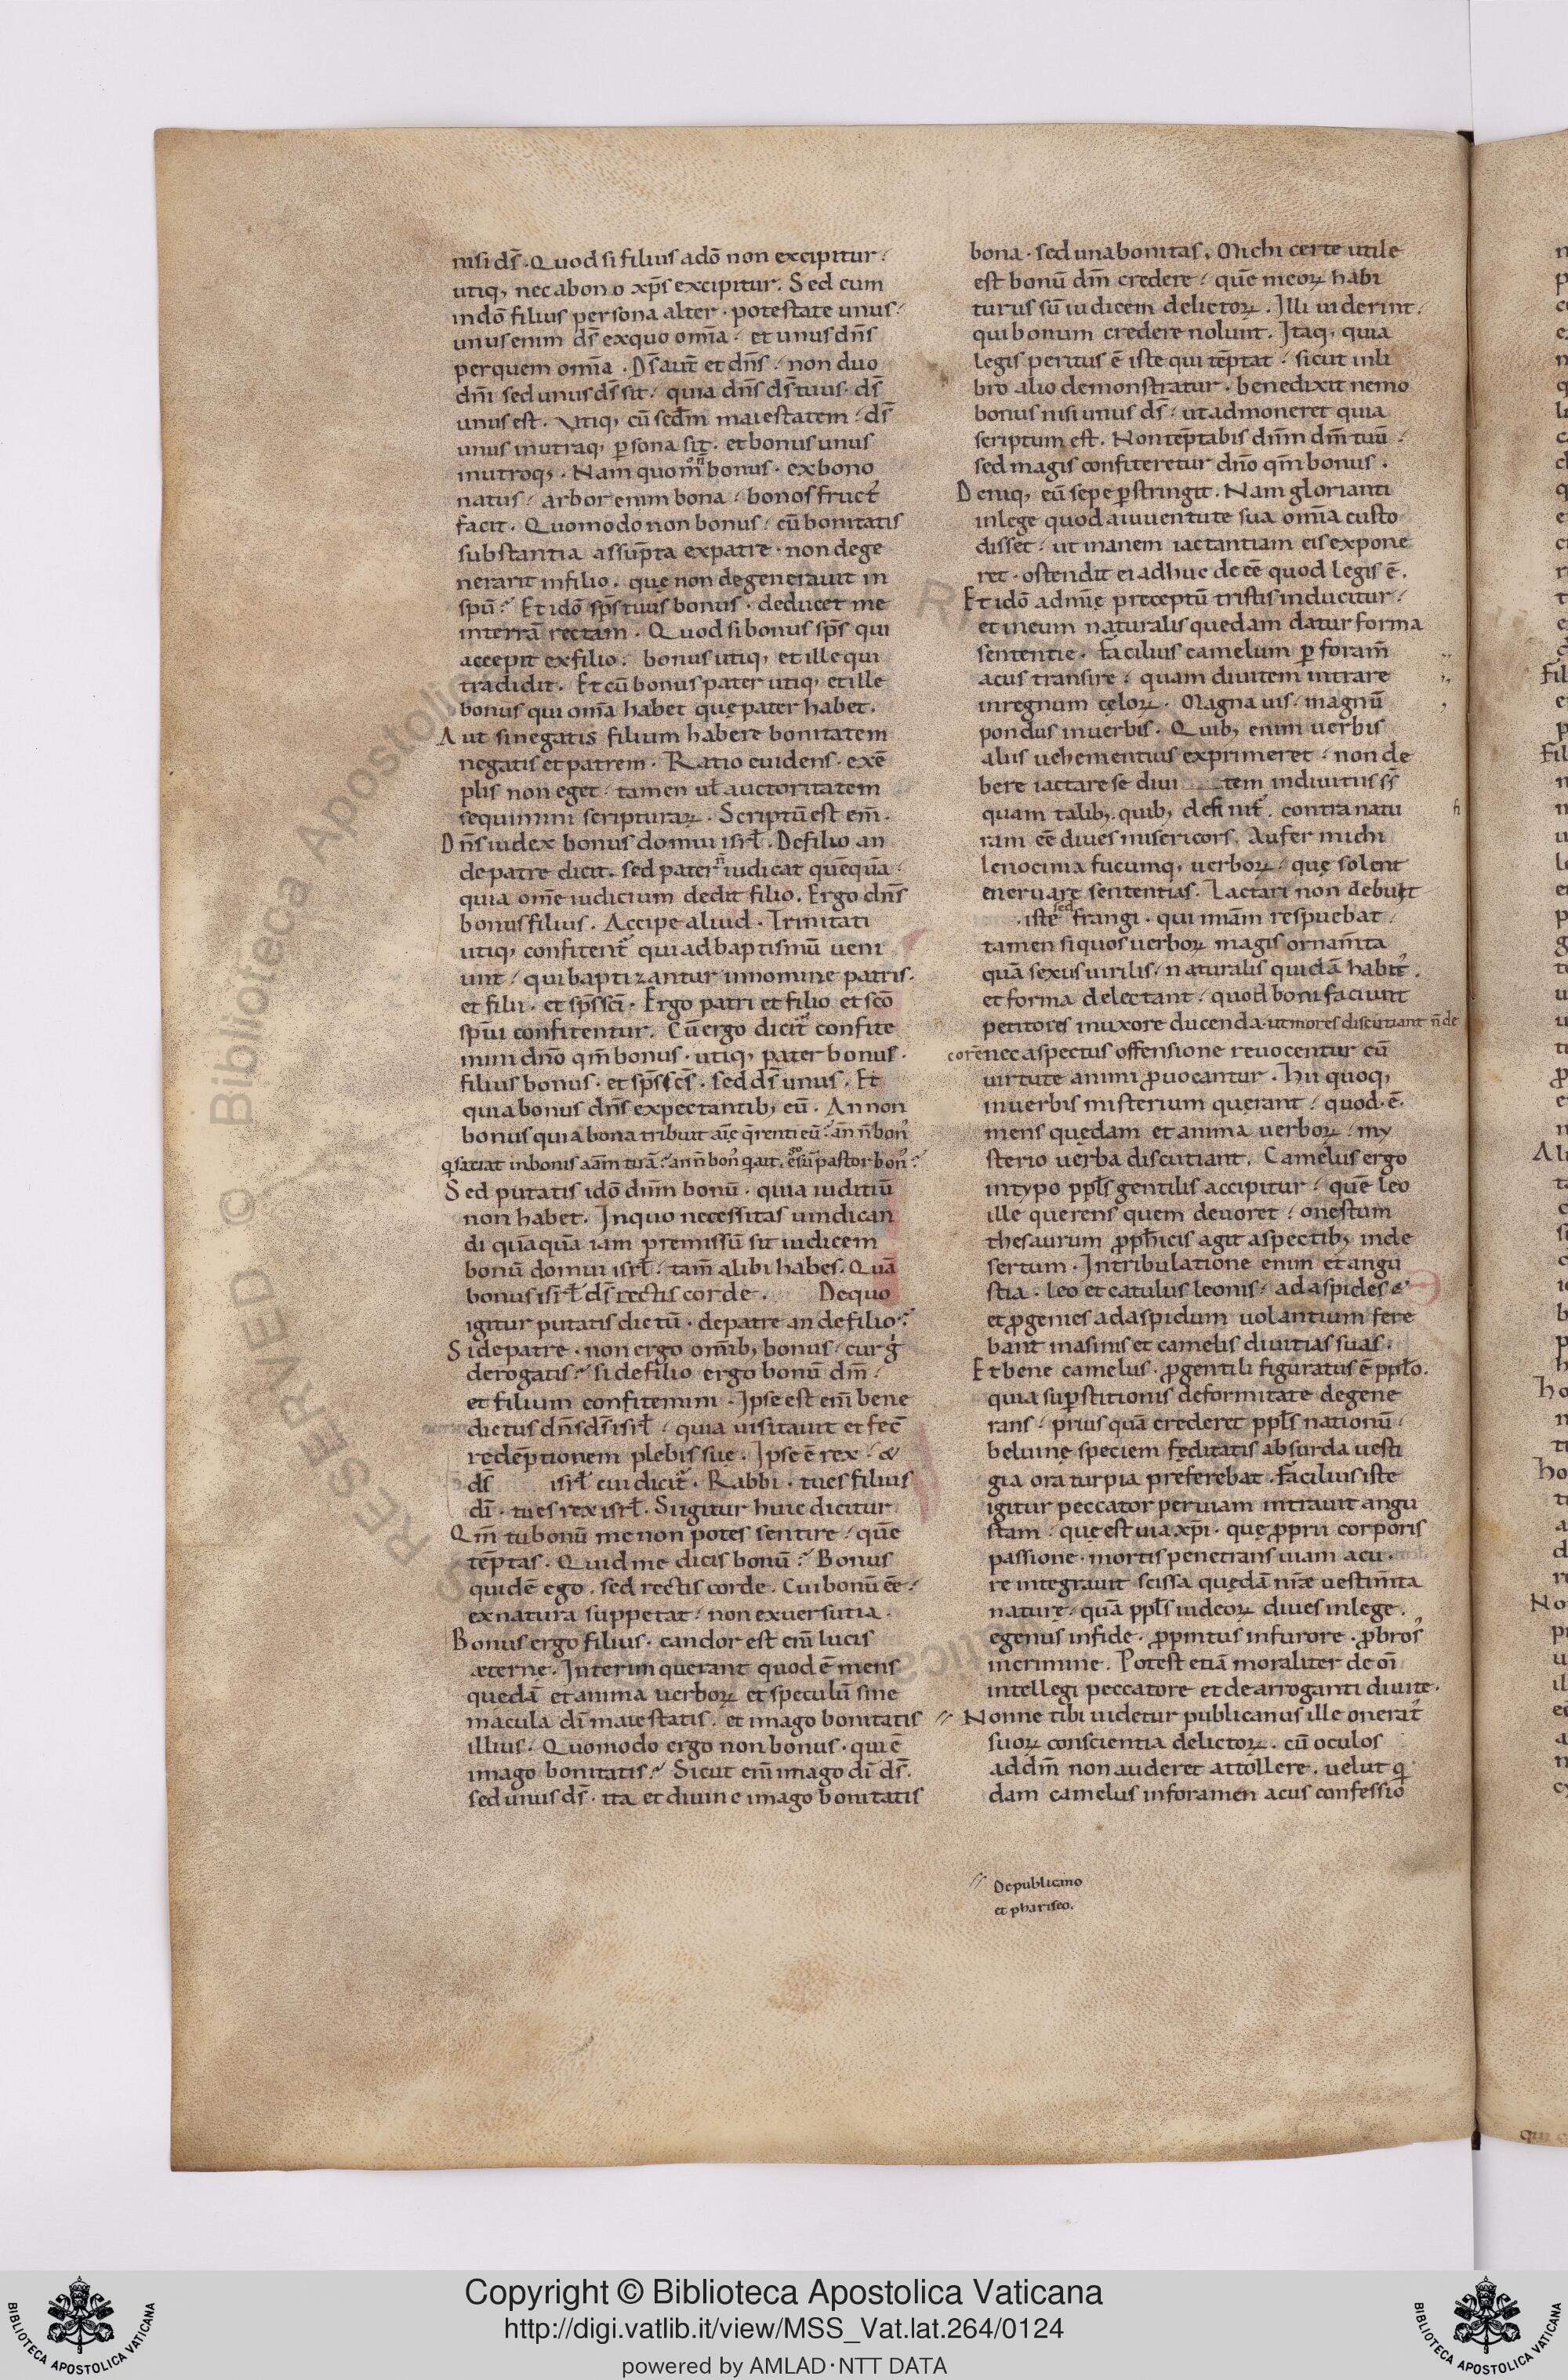 nisi ds̄. Quod si filius adō non excipitur.
utiq; nec abono xp̄s excipitur. Sed cum
indō filius persona alter. potestate unus.
unus enim ds̄ exquo om̄ia. et unus dn̄s
perquem om̄ia. Ds̄ aut̄ et dn̄s. non duo
dm̄i sed unus ds̄ sit. quia dn̄s ds̄ tuus. ds̄
unus est. Vtiq; cū scd̄m maiestatem. ds̄
unus inutraq; p̱sona sit. et bonus unus
inutroq;. Nam quom̊ n̄ bonus. exbono
natus. arbor enim bona. bonos fruct᷒
facit. Quomodo non bonus. cū bonitatis
substantia assūpta expatre. non dege
nerarit infilio. quę non degenerauit in
spū. Et idō sp̄s tuus bonus. deducet me
interrā rectam. Quod si bonus sp̄s qui
accepit exfilio. bonus utiq; et ille qui
tradidit. Et cū bonus pater utiq; et ille
bonus qui om̄a habet quę pater habet.
Aut si negatis filium habere bonitatem
negatis et patrem. Ratio euidens. exē
plis non eget. tamen ul̄ auctoritatem
sequimini scripturaꝝ. Scriptū est em̄.
Dn̄s iudex bonus domui isrł. Defilio an
depatre dicit. sed pater n̄ iudicat quēquā.
quia om̄e iudicium dedit filio. Ergo dn̄s
bonus filius. Accipe aliud. Trinitati
utiq; confitent᷑ qui adbaptismū ueni
unt. qui baptizantur innomine patris.
et filii. et sp̄s sc̄i. Ergo patri et filio et scō
spūi confitentur. Cū ergo dicit᷑ confite
mini dnō qm̄ bonus. utiq; pater bonus.
filius bonus. et sp̄s sc̄s. sed ds̄ unus. Et
quia bonus dn̄s expectantib; eū. An non
bonus quia bona tribuit aīę q̄renti eū. an n̄ bon᷒
q̇ satiat inbonis aām tuā. an n̄ bon᷒ q̇ ait. ego sū pastor bon᷒.
Sed putatis idō dn̄m bonū. quia iuditiū
non habet. Inquo necessitas uindican
di quāquā iam premissū sit iudicem
bonū domui isrł. tam̄ alibi habes. Quā
bonus isrł ds̄ rectis corde. Dequo
igitur putatis dictū. depatre an defilio.
Si depatre. non ergo om̄ib; bonus. cur g̊
derogatis. si defilio ergo bonū dm̄.
et filium confitemini. Ipse est em̄ bene
dictus dn̄s ds̄ isrł. quia uisitauit et fec̄
redēptionem plebis suę. Ipse ē rex. &
ds̄ isrł cui dicit᷑. Rabbi. tu es filius
dī. tu es rex isrł. Si igitur huic dicitur
Qm̄ tu bonū me non potes sentire. quē
tēptas. Quid me dicis bonū. Bonus
quidē ego. sed rectis corde. Cui bonū eē.
exnatura suppetat. non exuersutia.
Bonus ergo filius. candor est em̄ lucis
æternę. Interim querant quod ē mens
quedā et anima uerboꝝ et speculū sine
macula dī maiestatis. et imago bonitatis
illius. Quomodo ergo non bonus. qui ē
imago bonitatis. Sicut em̄ imago dī ds̄.
sed unus ds̄. ita et diuine imago bonitatis
bona. sed una bonitas. Michi certe utile
est bonū dm̄ credere. quē meoꝝ habi
turus sū iudicem delictoꝝ. Illi uiderint.
qui bonum credere nolunt. Itaq; quia
legis peritus ē iste qui tēptat. sicut inli
bro alio demonstratur. bene dixit nemo
bonus nisi unus ds̄. ut admoneret quia
scriptum est. Non tēptabis dn̄m dm̄ tuū.
sed magis confiteretur dnō qm̄ bonus.
Deniq; eū sepe p̱stringit. Nam glorianti
inlege quod aiuuentute sua om̄ia custo
disset. ut inanem iactantiam eis expone
ret. ostendit ei adhuc deeē quod legis ē.
Et idō admīę preceptū tristis inducitur.
et ineum naturalis quedam datur forma
sententie. Facilius camelum p̱ foram̄
acus transire. quam diuitem intrare
inregnum cęloꝝ. Magna uis. magnū
pondus inuerbis. Quib; enim uerbis
aliis uehementius exprimeret. non de
bere iactare se diui tem indiuitiis s̄s
quam talib;. quib; definit᷑. contra natu
ram eē diues misericors. Aufer michi
lenocinia fucumq; uerboꝝ. quę solent
eneruare sententias. Iactari non debuit
iste sed frangi. qui miām respuebat.
tamen si quos uerboꝝ magis ornam̄ta
quā sexus uirilis. naturalis quidā habit᷒.
et forma delectant. quod boni faciunt
petitores inuxore ducenda. ut mores discutiant n̄ de
corē nec aspectus offensione reuocentur cū
uirtute animi ꝓuocantur. Hii quoq;
inuerbis misterium querant. quod. ē.
mens quędam et anima uerboꝝ. my
sterio uerba discutiant. Camelus ergo
intypo pplī gentilis accipitur. quē leo
ille querens quem deuoret. onestum
thesaurum ꝓpħicis agit aspectib; inde
sertum. Intribulatione enim et angu
stia. leo et catulus leonis. ad aspides &
et ꝓgenies adaspidum uolantium fere
bant inasinis et camelis diuitias suas.
Et bene camelus. ꝓgentili figuratus ē ppłō.
quia sup̱stitionis deformitate degene
rans. prius quā crederet ppls̄ nationū.
beluinę speciem feditatis absurda uesti
gia ora turpia preferebat. Facilius iste
igitur peccator peruiam intrauit angu
stam. quę est uia xp̄i. quę ꝓprii corporis
passione. mortis penetrans uiam acu.
re integrauit scissa quędā nr̄æ uestim̄ta
naturę. quā ppls̄ iudeoꝝ diues inlege.
egenus infide. ꝓpintus infurore. ꝓbros᷒
incrimine. Potest etiā moraliter de oī
intellegi peccatore et dearroganti diuite.
Nonne tibi uidetur publicanus ille onerat᷒
suoꝝ conscientia delictoꝝ. cū oculos
addm̄ non auderet attollere. uelut q̇
dam camelus inforamen acus confessio
Depublicano
et phariseo.
Copyright © Biblioteca Apostolica Vaticana
http://digi.vatlib.it/view/MSS_Vat.lat.264/0124
powered by AMLAD·NTT DATA
BIBLIOTECA APOSTOLICA VATICANA
BIBLIOTECA APOSTOLICA VATICANA